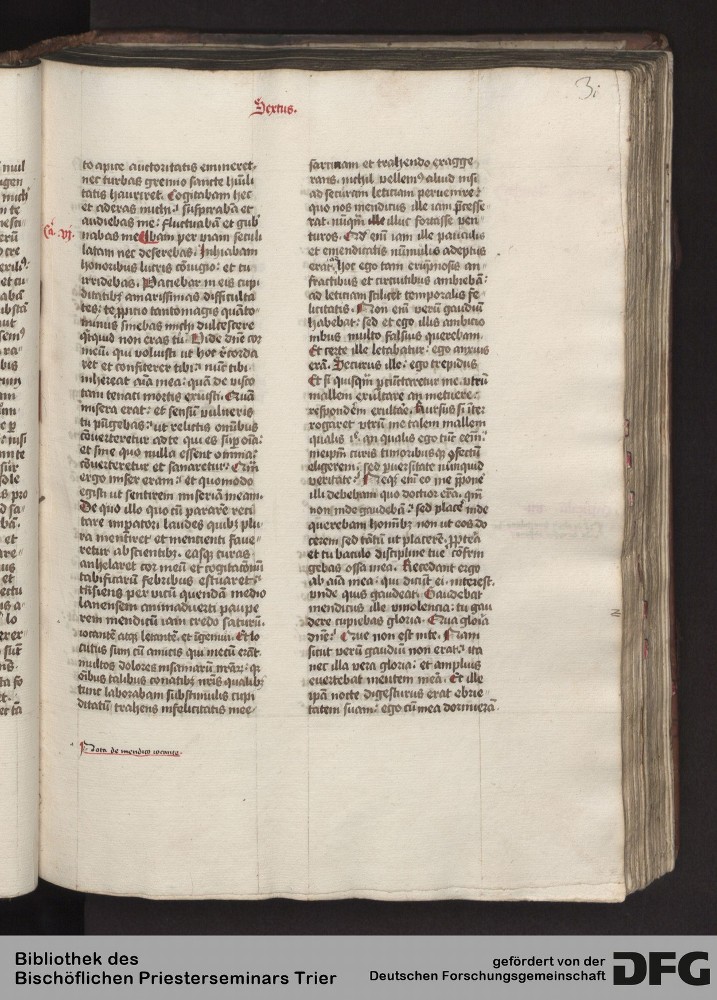 Sextus.
3i
to apice auctoritatis emineret.
nec turbas gremio sancte humili
tatis hauriret. Cogitabam hec
et aderas michi. suspirabā et
audiebas me. fluctuabā et gub
Ca. vj.
nabas me Ibam per viam seculi
latam nec deserebas. Inhiabam
honoribus lucris cōiugio: et tu
irridebas. Paciebar in eis cupi
ditatibꝫ amarissimas difficulta
tes: te ꝓpicio tantomagis quāto
minus sinebas michi dulcescere
qͥcquid non eras tu. Vide dn̄e cor
meū. qui voluisti ut hoc recorda
ret et confiterer tibi: nūc tibi
inhereat aīa mea: quā de visco
tam tenaci mortis exuisti. Quā
misera erat: et sensū vulneris
tu pūgebas: ut relictis omībus
cōverteretur ad te qui es sup oīa:
et sine quo nulla essent omnia:
cōverteretur et sanaretur. Qm̄
ergo miser eram: et quomodo
egisti ut sentirem miseriā meam.
De quo illo quo cū pararē reci
tare impatori laudes quibꝫ plu
ra mentiret et mentienti fave
retur ab scientibꝫ. easqꝫ curas
anhelaret cor meū et cogitacionū
tabificarū febribus estuaret:
trāsiens per vicū quendā medio
lanensem animadverti paupe
rem mendicū iam credo saturū.
iocantē atqꝫ letantē. et īgemui. Et lo
cutus sum cū amicis qui mecū erāt
multos dolores insaniarū nr̄arꝫ: qꝛ
oībus talibus conatibꝫ nr̄is qualibꝫ
tunc laborabam sub stimulis cupi
ditatū trahens infelicitatis mee
sarcinam et trahendo exagge
rans. nichil vellemꝰ aliud nisi
ad securam leticiam pervenire:
quo nos mendicus ille iam p̄cesse
rat. nūqm̄ ille illuc fortasse ven
turos. Qd̓ em̄ iam ille pauculis
et emendicatis nūmulis adeptus
erat. hoc ego tam erūpnosis an
fractibus et circuitibus ambiebā:
ad leticiam scilicet temporalis fe
licitatis. Non em̄ verū gaudiū
habebat: sed et ego illis ambicio
nibus multo falsius querebam.
Et certe ille letabatur: ego anxius
erā. Securus ille: ego trepidus
Et si quisqm̄ p̄cūctaretur me utrū
mallem exultare an metuere:
respondḗm exultare. Rursus si īte:
rogaret utrū me talem mallem
qualis ip̄. an qualis ego tūc eēm:
meipm̄ curis timoribusqꝫ ꝯfectū
eligerem: sed ꝑversitate nūnquid
veritate. Neqꝫ em̄ eo me p̄pone
illi debebam quo doctior erā. qm̄
non inde gaudebā: sed placē inde
querebam homībꝫ non ut eos do
cerem sed tātū ut placerē. ꝓpterea
et tu baculo discipline tue cōfrin
gebas ossa mea. Recedant ergo
ab aīa mea. qui dicūt ei. interest.
unde quis gaudeat. Gaudebat
mendicus ille vinolencia: tu gau
dere cupiebas gloria. Qua gloria
dn̄e: Que non est in te. Nam
sicut verū gaudiū non erat: ita
nec illa vera gloria: et amplius
evertebat mentem meā. Et ille
ip̄a nocte digesturus erat ebrie
tatem suam: ego cū mea dormierā
Nota de mendico iocante.
Bibliothek des
Bischöflichen Priesterseminars Trier
gefördert von der
Deutschen Forschungsgemeinschaft
DFG